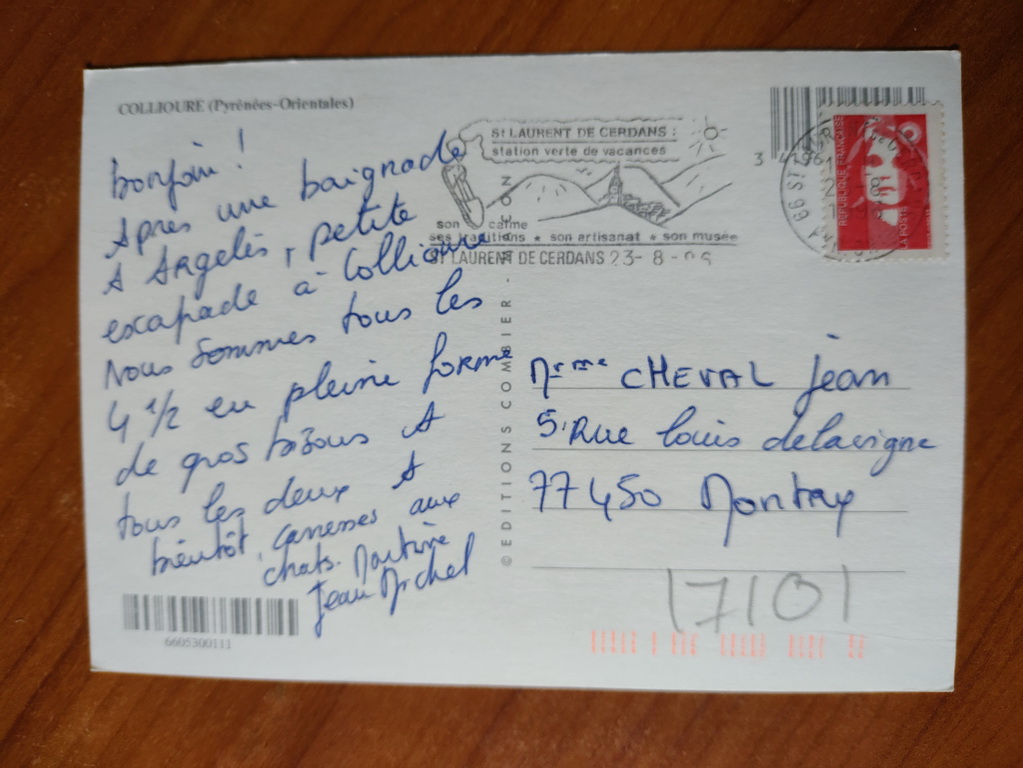 COLLIOURE (Pyrénées-Orientales)
bonjour !
Après une baignade
A Argelès, petite
escapade à Collioure
Nous sommes tous les
4 1/2 en pleine forme
de gros bizous A
tous les deux A
bientôt, caresses aux
chats. Martine
Jean Michel
6605300111
© EDITIONS COMBIER - MACON
St LAURENT DE CERDANS :
station verte de vacances
son calme
ses traditions * son artisanat * son musée
St LAURENT DE CERDANS 23-8-
REPUBLIQUE FRANÇAISE
LA POSTE
66 ST
Mr me CHEVAL Jean
5, Rue louis delavigne
77450 Montry
17101